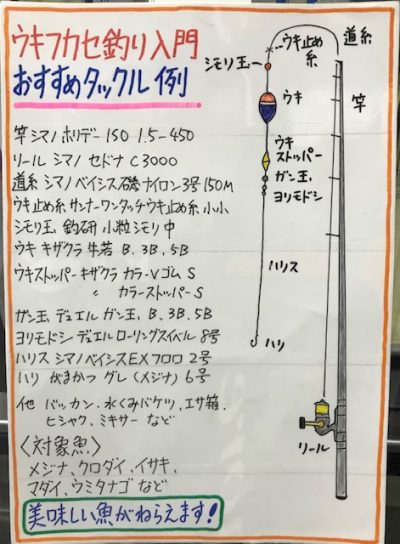 ウキフカセ釣り入門
おすすめタックル例
竿 シマノ ホリデーISO 1.5-450
リール シマノ セドナ C3000
道糸 シマノ ベイシス磯 ナイロン3号150M
ウキ止め糸 サンナーワンタッチウキ止め糸 小小
シモリ玉 釣研 小粒シモリ 中
ウキ キザクラ 牛若 B、3B、5B
ウキストッパー キザクラ カラーVゴム S
〃 カラーストッパーS
ガン玉 デュエル ガン玉、B、3B、5B
ヨリモドシ デュエル ローリングスイベル 8号
ハリス シマノベイシスEXフロロ 2号
ハリ がまかつ グレ(メジナ)6号
他 バッカン、水くみバケツ、エサ箱、
ヒシャク、ミキサー など
〈対象魚〉
メジナ、クロダイ、イサキ、
マダイ、ウミタナゴ など
美味しい魚がねらえます!
ウキ止め
糸
道糸
シモリ玉
ウキ
竿
ウキ
ストッパー
ガン玉
ヨリモドシ
ハリス
ハリ
リール